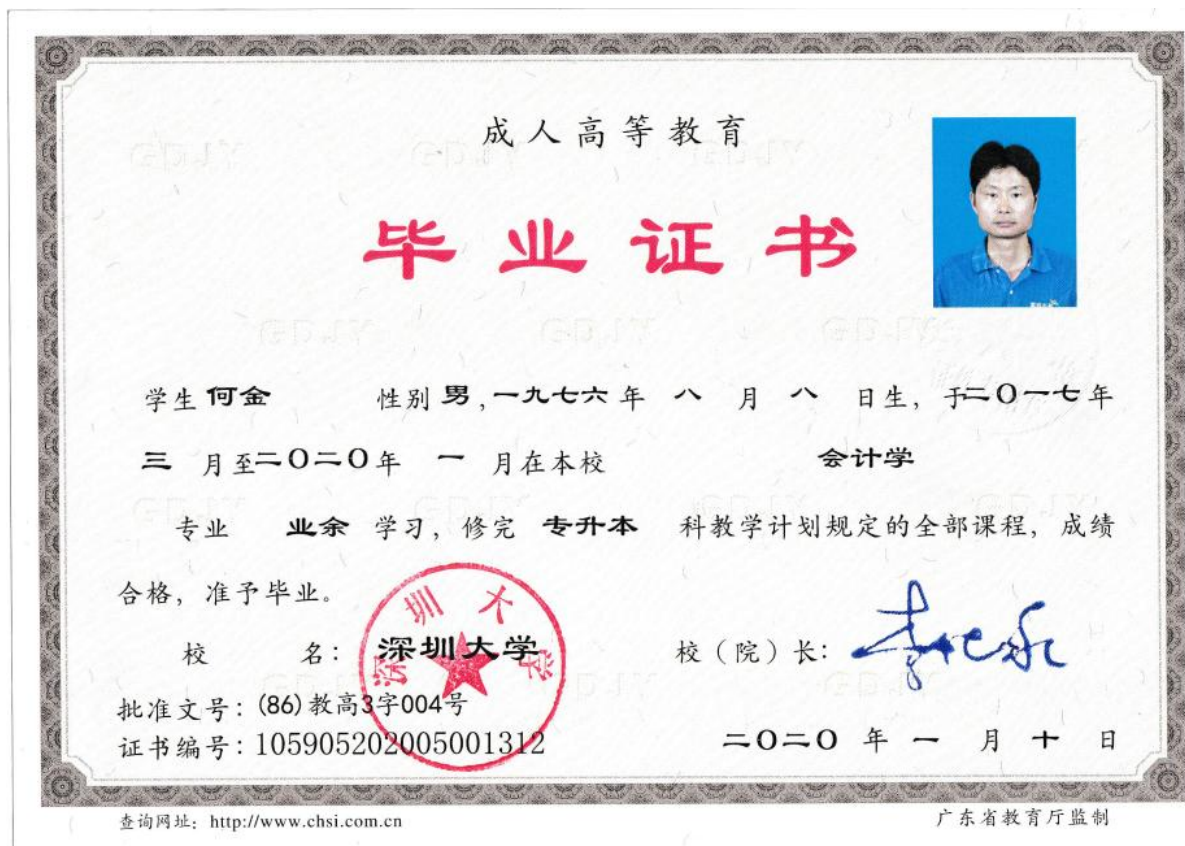 成人高等教育
毕业证书
学生 何金 性别 男，一九七六年 八 月 八 日生，于二〇一七年
三 月至二〇二〇年 一 月在本校 会计学
专业 业余 学习，修完 专升本 科教学计划规定的全部课程，成绩
合格，准予毕业。
校 名：深圳大学 校（院）长：
深圳大学
批准文号：(86)教高3字004号
证书编号：105905202005001312 二〇二〇 年 一 月 十 日
查询网址：http://www.chsi.com.cn 广东省教育厅监制